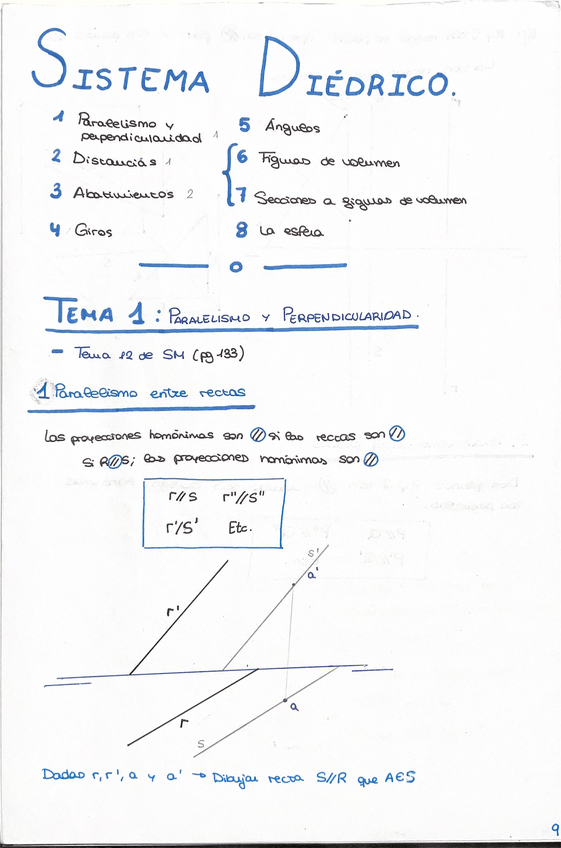 SISTEMA DIÉDRICO.
1 Paralelismo y
perpendicularidad 1
2 Distancias 1
3 Abatimientos 2
4 Giros
5 Ángulos
6 Figuras de volumen
7 Secciones a figuras de volumen
8 La esfera
TEMA 1: PARALELISMO Y PERPENDICULARIDAD.
- Tema 12 de SM (pg 133)
1 Paralelismo entre rectas
Las proyecciones homónimas son // si las rectas son //
Si R//S; las proyecciones homónimas son //
r//s r''//s''
r'/s' Etc.
s'
a'
r'
a
r
s
Dadas r, r', a y a' → Dibujar recta S//R que A∈S
9